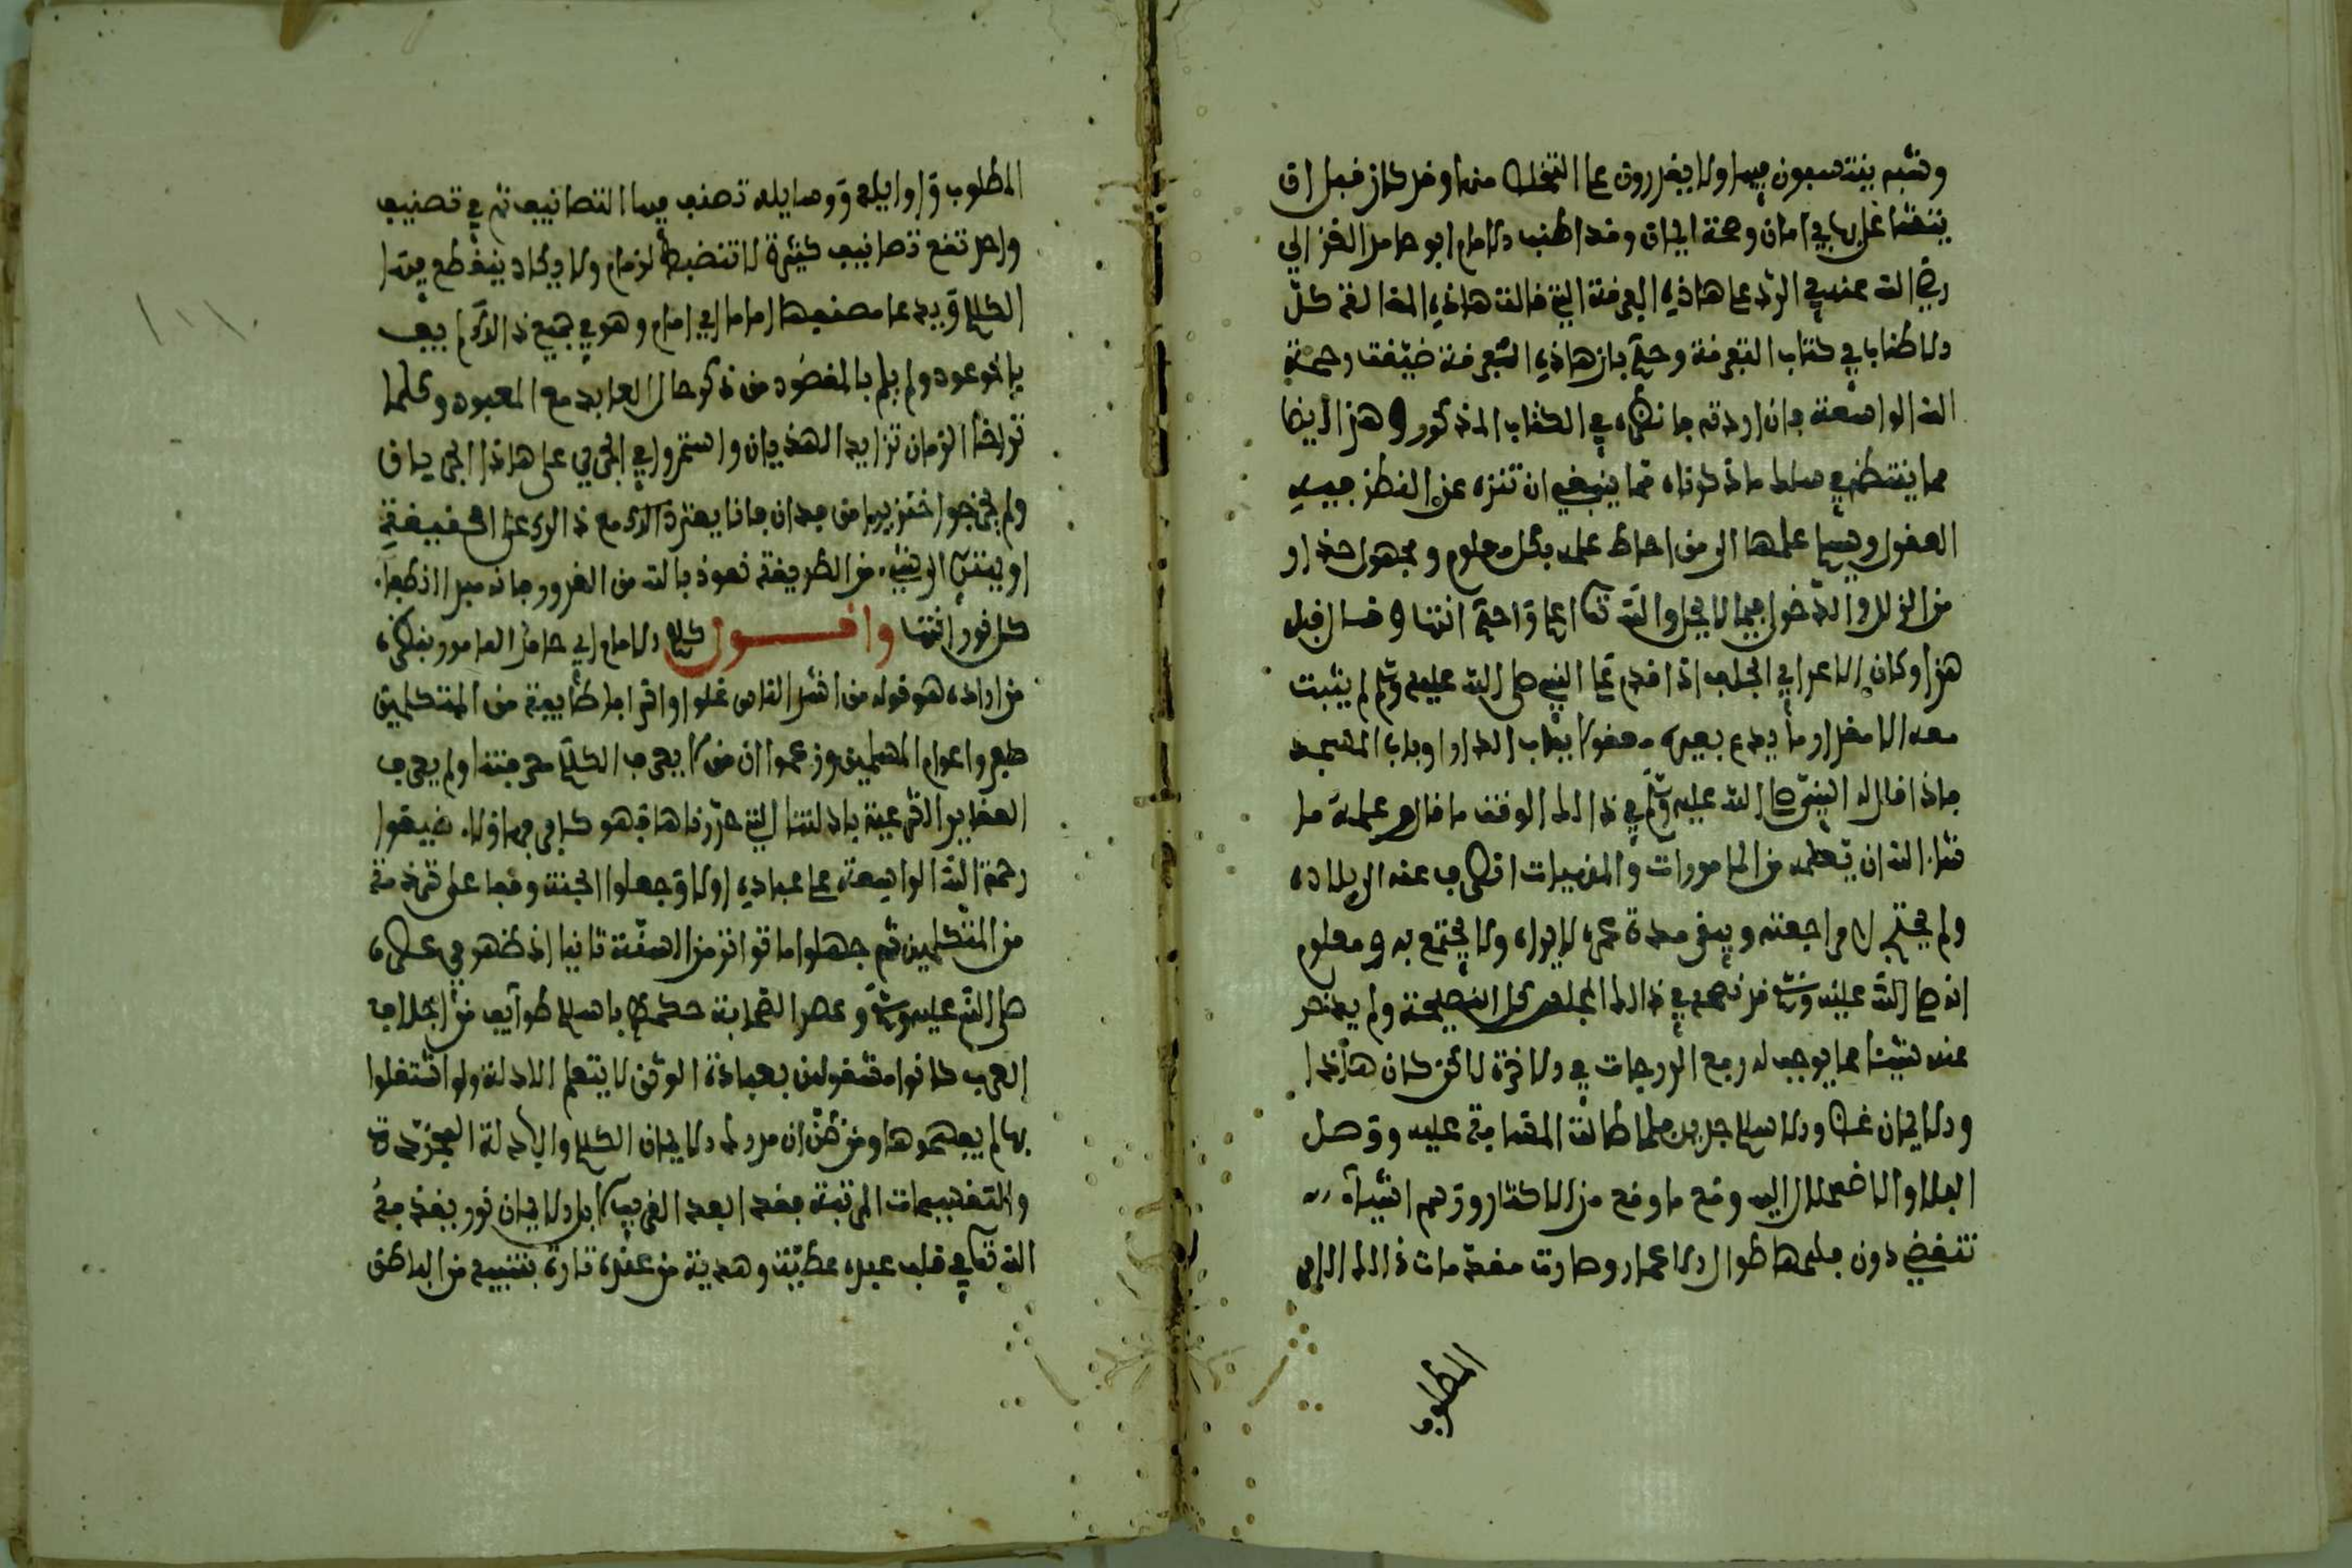 وشبه ينتسبون فيها ولا يقدرون على التخلص منها وقد كان قبل ان
يتشاغل بها في امان وصحة ايمان وقد اطنب الامام ابو حامد الغزالي
رضي الله عنه في الرد على هاذه الفرقة التي قالت هاذه المقالة كل
الاطناب في كتاب التفرقة وحكم بان هاذه الشرذمة ضيقت رحمة
الله الواسعة فان اردته فانظره في الكتاب المذكور وهذا ايضا
مما ينتظم في سلك ما ذكرناه مما ينبغي ان تنزه عن النظر فيه
العقول ويسلم علمها الى من احاط علمه بكل معلوم ومجهول حذرا
من الزلل والدخول فيما لا يحل والله تعالى اعلم واحكم انتهى وقال قبل
هذا وكان الاعرابي الجلف اذا قدم على النبي صلى الله عليه وسلم لم يثبت
معه الا مقدار ما يدع بعيره معقولا بباب الدار او باب المسجد
فاذا قال له النبي صلى الله عليه وسلم في ذالك الوقت ما قال وعلمه ما
شاء الله ان يعلمه من المامورات والمنهيات انصرف عنه الى بلاده
ولم يحتج الى مراجعته ويبقى مدة عمره لا يراه ولا يجتمع به ومعلوم
انه صلى الله عليه وسلم قد نصحه في ذالك المجلس كل النصيحة ولم يدخر
عنه شيئا مما يوجب له رفع الدرجات في الاخرة لاكن كان هاذا
والايمان غض والاسلام جديد فلما طالت المسافة عليه ووصل
البلا والاضمحلال اليه وقع ما وقع من الاكثار ورسم اشياء
تنقضي دون فهمها طوال الاعمار وصارت مقدمات ذالك الامر
المطلوب
المطلوب واوايله ووسايله تصنف فيها التصانيف ثم في تصنيف
واحد تقع تصانيف كثيرة لا تنضبط لزمام ولا يكاد ينقطع فيها
الكلام ويدعى مصنفها اماما اي امام وهو في جميع ذالك لم يف
بالموعود ولم يلم بالمقصود من ذكر حال العابد مع المعبود وكلما
تراخا الزمان تزايد الهذيان واستمروا في الجري على هاذا الجريان
ولم يخرجوا
او ينتمي الى شيء من الطريقة نعوذ بالله من الغرور فانه مبدا انطفاء
كل نور انتهى واقول كلام الامام ابي حامد المامور بنظره
من اراده هو قوله من اشد الناس غلوا وافراطا طايفة من المتكلمين
كفروا عوام المسلمين وزعموا ان من لا يعرف الكلام معرفتنا ولم يعرف
العقايد الشرعية بادلتنا التي حررناها فهو كافر فهاؤلاء ضيقوا
رحمة الله الواسعة على عباده اولا وجعلوا الجنة وقفا على شرذمة
من المتكلمين ثم جهلوا ما تواتر من السنة ثانيا اذ ظهر في عصره
صلى الله عليه وسلم وعصر الصحابة حكمهم باسلام طوايف من اجلاف
العرب كانوا مشغولين بعبادة الوثن لا يتعلم الادلة ولو اشتغلوا
بها لم يفهموها ومن ظن ان مدرك الايمان الكلام والادلة المجردة
والتقسيمات المرتبة فقد ابعد القريب لا بل الايمان نور يقذفه
الله تعالى في قلب عبده عطية وهدية من عنده تارة بتنبيه من الباطن